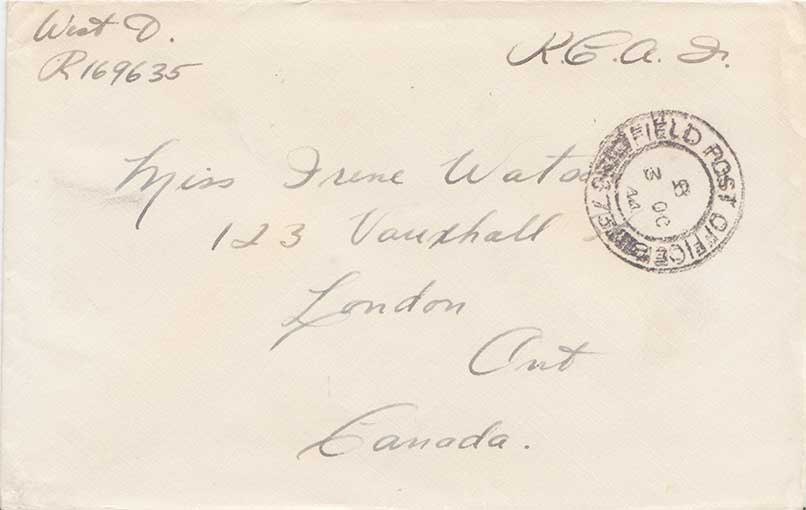 West D.
R169635
R.C.A.F.
Miss Irene
123 Vauxhall
London
Ont
Canada.
FIELD POST OFFICE
3 OC 44